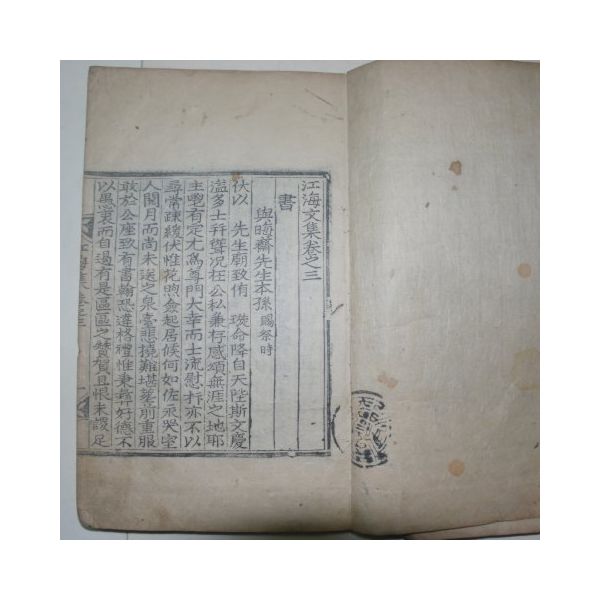 江海文集卷之三
書
與晦齋先生本孫 賜祭時
伏以 先生廟致侑 璇命降自天陛斯文慶
溢多士拜聳况在公私兼荷感頌無涯之地耶
主鬯有定尤爲尊門大幸而士流慰抃亦不以
尋常踈緩伏惟花煦僉起居候何如佐承哭室
人閱月而尚未送之泉臺悲撓難堪墓前重服
敢於公座致有書翰恐違格禮惟秉彛好德不
以愚衷而自過有是區區之贊賀且恨末護足